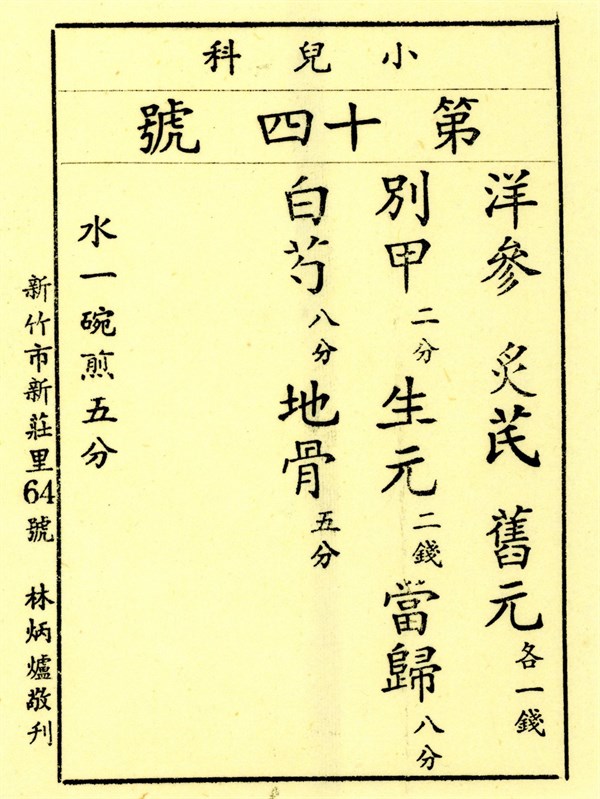 小兒科
第十四號
洋參 炙芪 舊元各一錢
別甲二分生元二錢當歸八分
白芍八分地骨五分
水一碗煎五分
新竹市新莊里64號 林炳爐敬刊